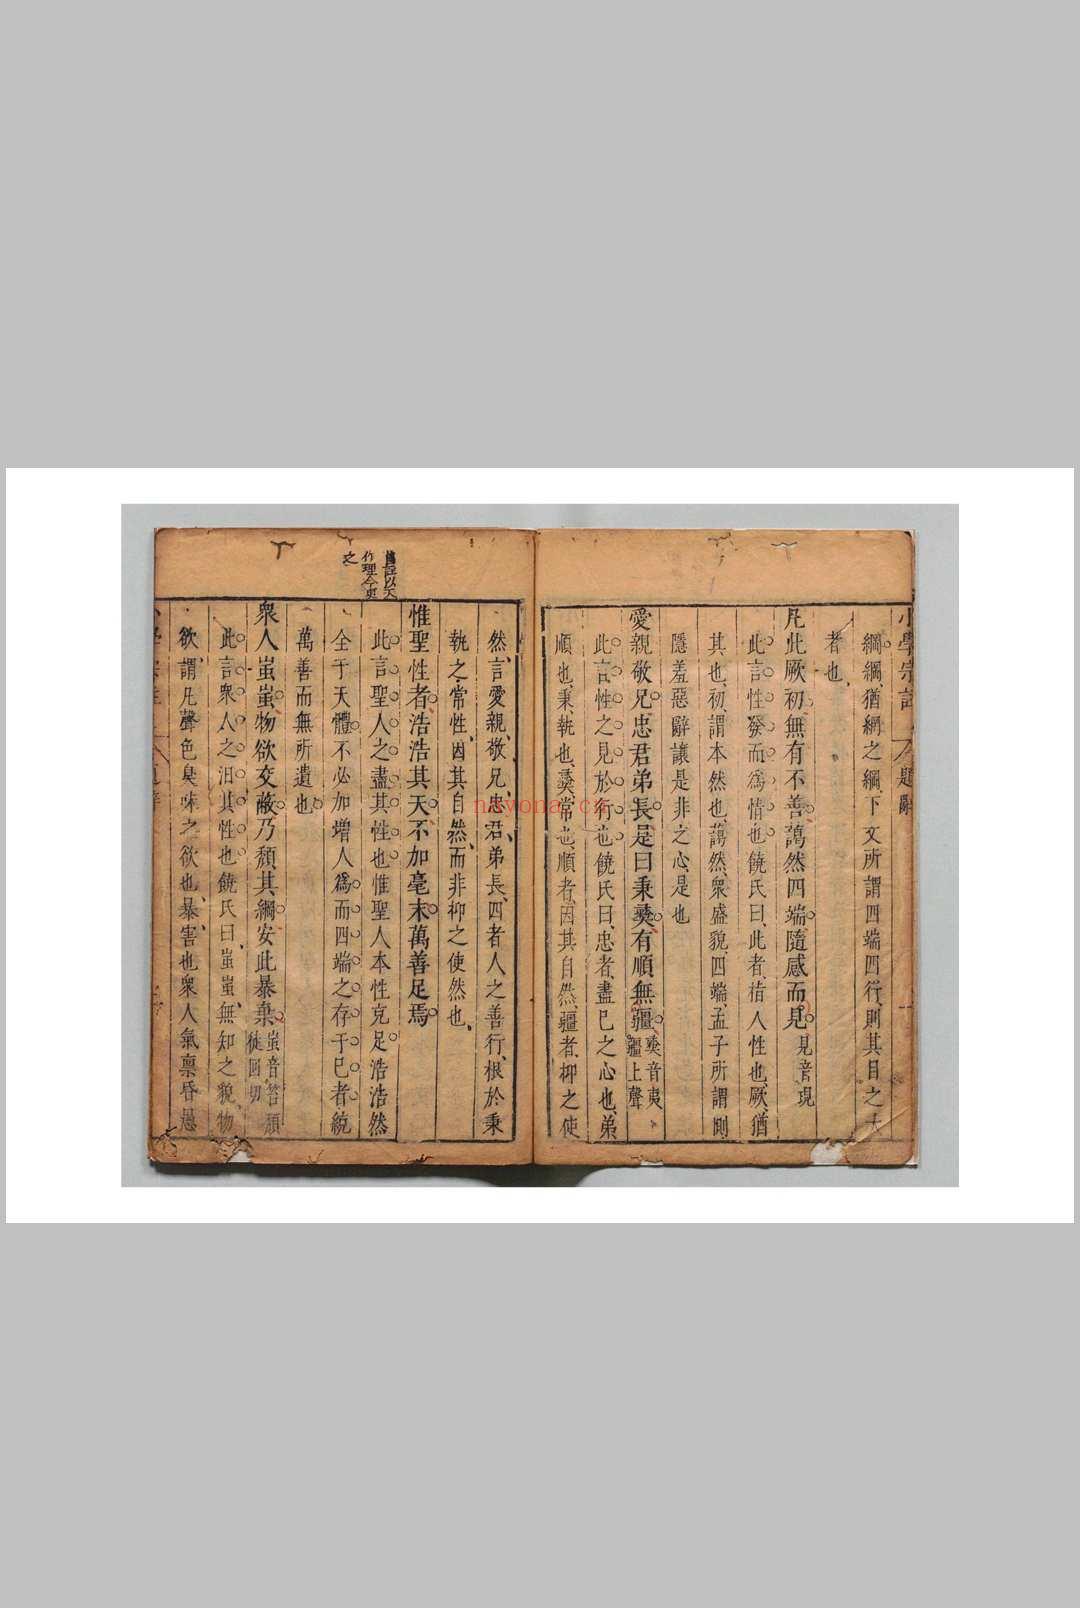 小學宗註
題辭
綱綱猶網之綱下文所謂四端四行則其目之大
者也
凡此厥初無有不善藹然四端隨感而見見音現
此言性發而爲情也饒氏曰此者指人性也厥猶
其也初謂本然也藹然衆盛貌四端孟子所謂惻
隱羞惡辭讓是非之心是也
愛親敬兄忠君弟長是曰秉彝有順無彊彝音夷
彊上聲
此言性之見於行也饒氏曰忠者盡己之心也弟
順也秉執也彝常也順者因其自然彊者抑之使
然言愛親敬兄忠君弟長四者人之善行根於秉
執之常性因其自然而非抑之使然也
惟聖性者浩浩其天不加毫末萬善足焉
舊註以天
作理今更
之
此言聖人之盡其性也惟聖人本性克足浩浩然
仝于天體不必加增人爲而四端之存于己者統
萬善而無所遺也
衆人蚩蚩物欲交蔽乃頹其綱安此暴棄蚩音笞頹
徒回切
此言衆人之汩其性也饒氏曰蚩蚩無知之貌物
欲謂凡聲色臭味之欲也暴害也衆人氣稟昏愚
navona.cn